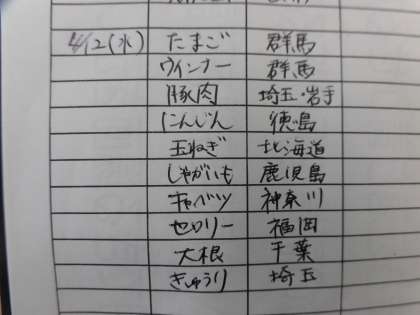 4/12(水) たまご 群馬
ウインナー 群馬
豚肉 埼玉・岩手
にんじん 徳島
玉ねぎ 北海道
じゃがいも 鹿児島
キャベツ 神奈川
セロリー 福岡
大根 千葉
きゅうり 埼玉